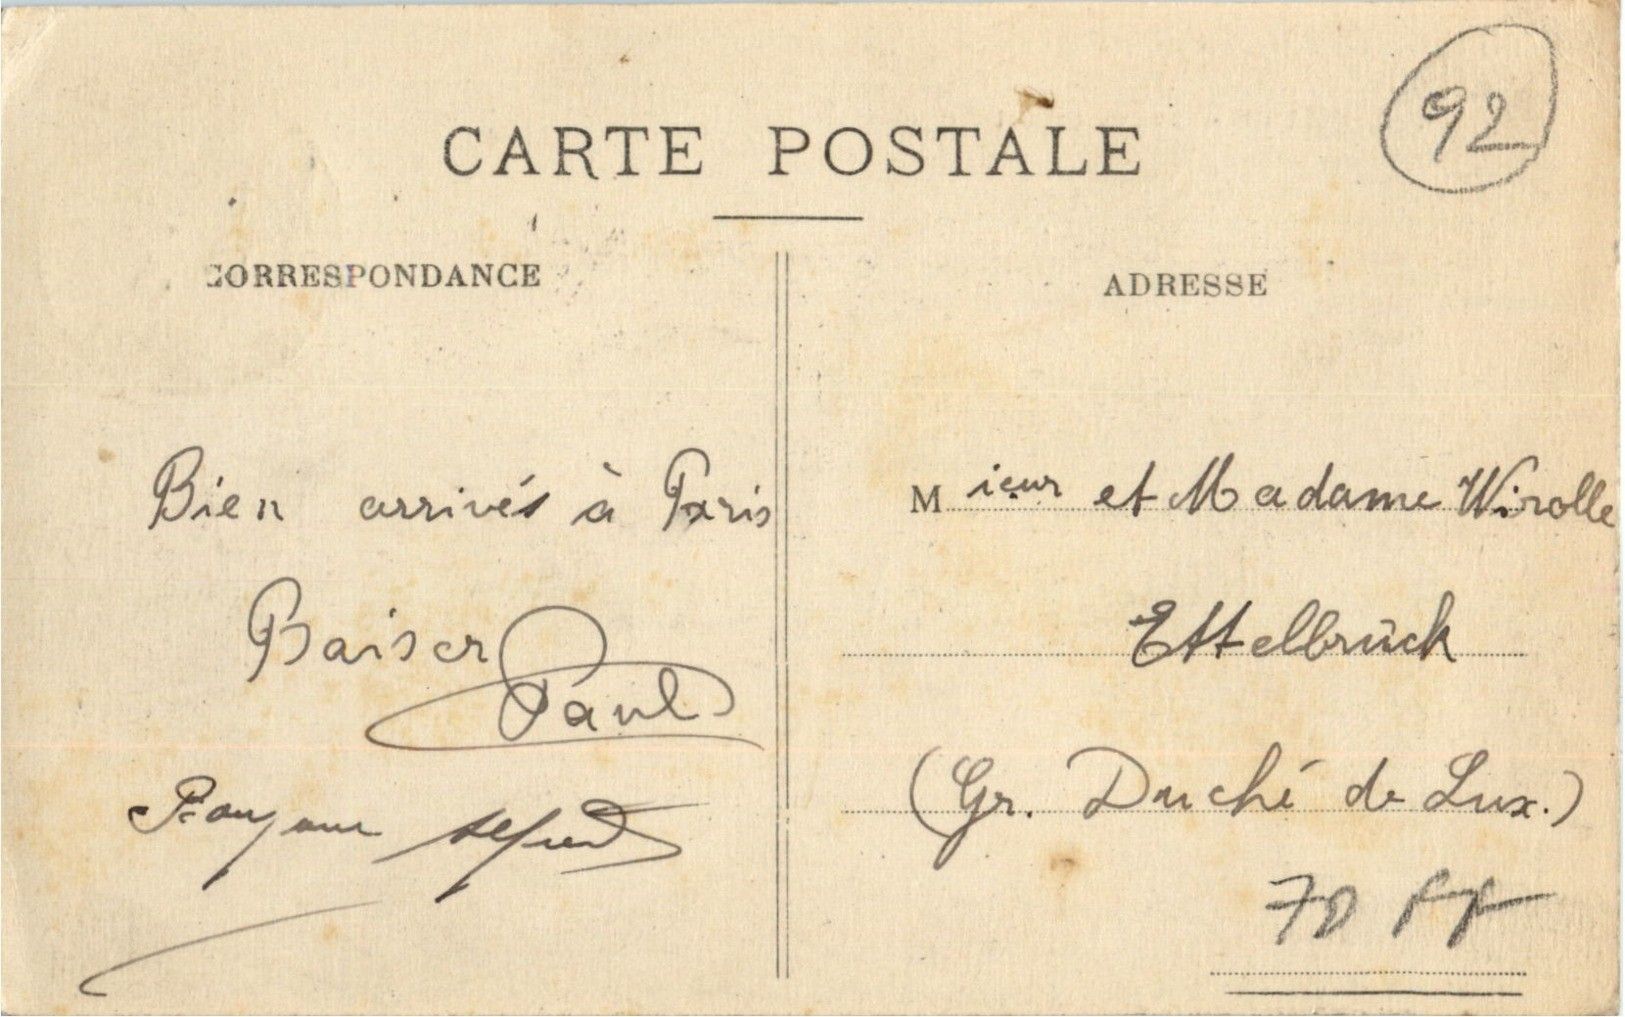 CARTE POSTALE
92
CORRESPONDANCE
Bien arrivés à Paris
Baiser
Paul
Alfred
ADRESSE
Mieur et Madame Wirolle
Ettelbrück
(Gr. Duché de Lux.)
70 FF